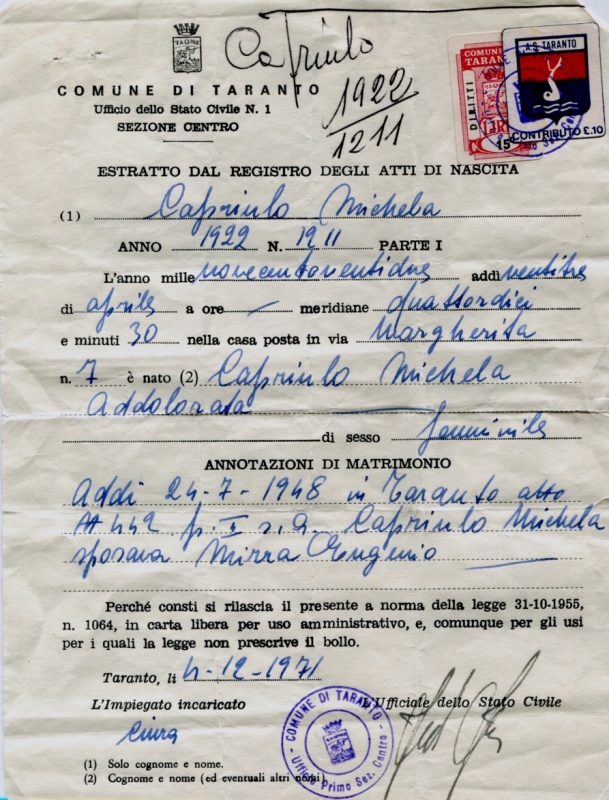 Capriulo
1922
1211
COMUNE DI TARANTO
Ufficio dello Stato Civile N. 1
SEZIONE CENTRO
COMUNE
TARANTO
DIRITTI
LIRE
15
A.S. TARANTO
CONTRIBUTO £.10
ESTRATTO DAL REGISTRO DEGLI ATTI DI NASCITA
(1) Capriulo Michela
ANNO 1922 N. 1211 PARTE I
L'anno mille novecentoventidue addì ventitre
di aprile a ore — meridiane quattordici
e minuti 30 nella casa posta in via Margherita
n. 7 è nato (2) Capriulo Michela
Addolorata
di sesso femminile
ANNOTAZIONI DI MATRIMONIO
Addì 24-7-1948 in Taranto atto
N 442 p. II s. A. Capriulo Michela
sposava Mirra Eugenio
Perché consti si rilascia il presente a norma della legge 31-10-1955,
n. 1064, in carta libera per uso amministrativo, e, comunque per gli usi
per i quali la legge non prescrive il bollo.
Taranto, li 4-12-1971
L'Impiegato incaricato L'Ufficiale dello Stato Civile
COMUNE DI TARANTO
Ufficio Primo Sez. Centro
(1) Solo cognome e nome.
(2) Cognome e nome (ed eventuali altri nomi)